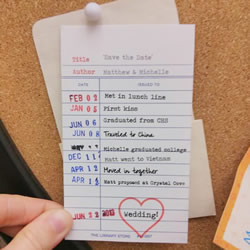 Title "Save the Date"
Author Matthew & Michelle
DATE ISSUED TO
FEB 02 Met in lunch line
JAN 05 First kiss
JUN 06 Graduated from CHS
JUN 08 Traveled to China
Michelle graduated college
DEC 11 Matt went to Vietnam
APR 12 Moved in together
APR 15 Matt proposed at Crystal Cove
JUN 22 Wedding!
THE LIBRARY STORE